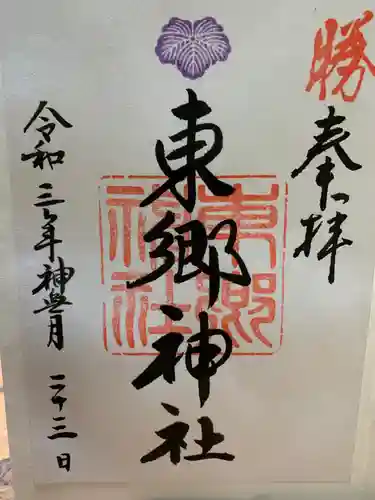 勝
奉拝
東郷神社
東郷神社
令和三年神無月二十三日